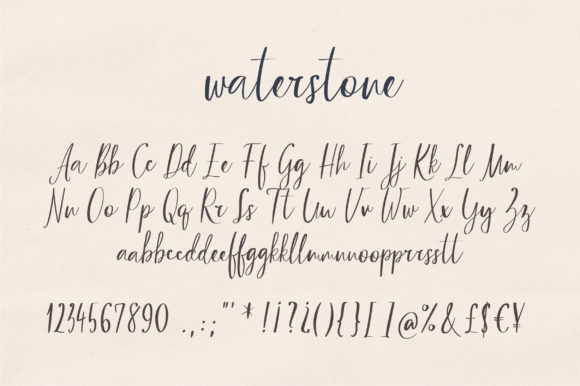 waterstone
Aa Bb Cc Dd Ee Ff Gg Hh Ii Jj Kk Ll Mm
Nn Oo Pp Qq Rr Ss Tt Uu Vv Ww Xx Yy Zz
aabbccddeeffggkkllmmnnoopprrsstt
1234567890 .,:; "' * ! ¡ ? ¿ ( ) { } [ ] @ % & £ $ € ¥